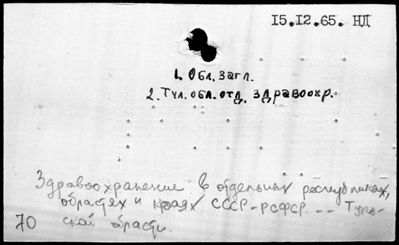 15.12.65. НД
1. Обл. загл.
2. Тул. обл. отд. здравоохр.
Здравоохранение в отдельных республиках,
областях и краях СССР-РСФСР. -- Туль-
70 ской области.